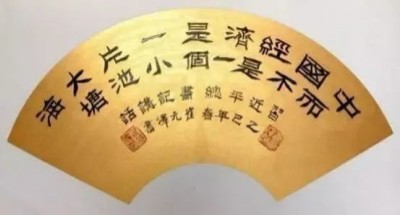 中國經濟是一片大海
而不是一個小池塘
習近平總書記講話
乙巳年春崔書